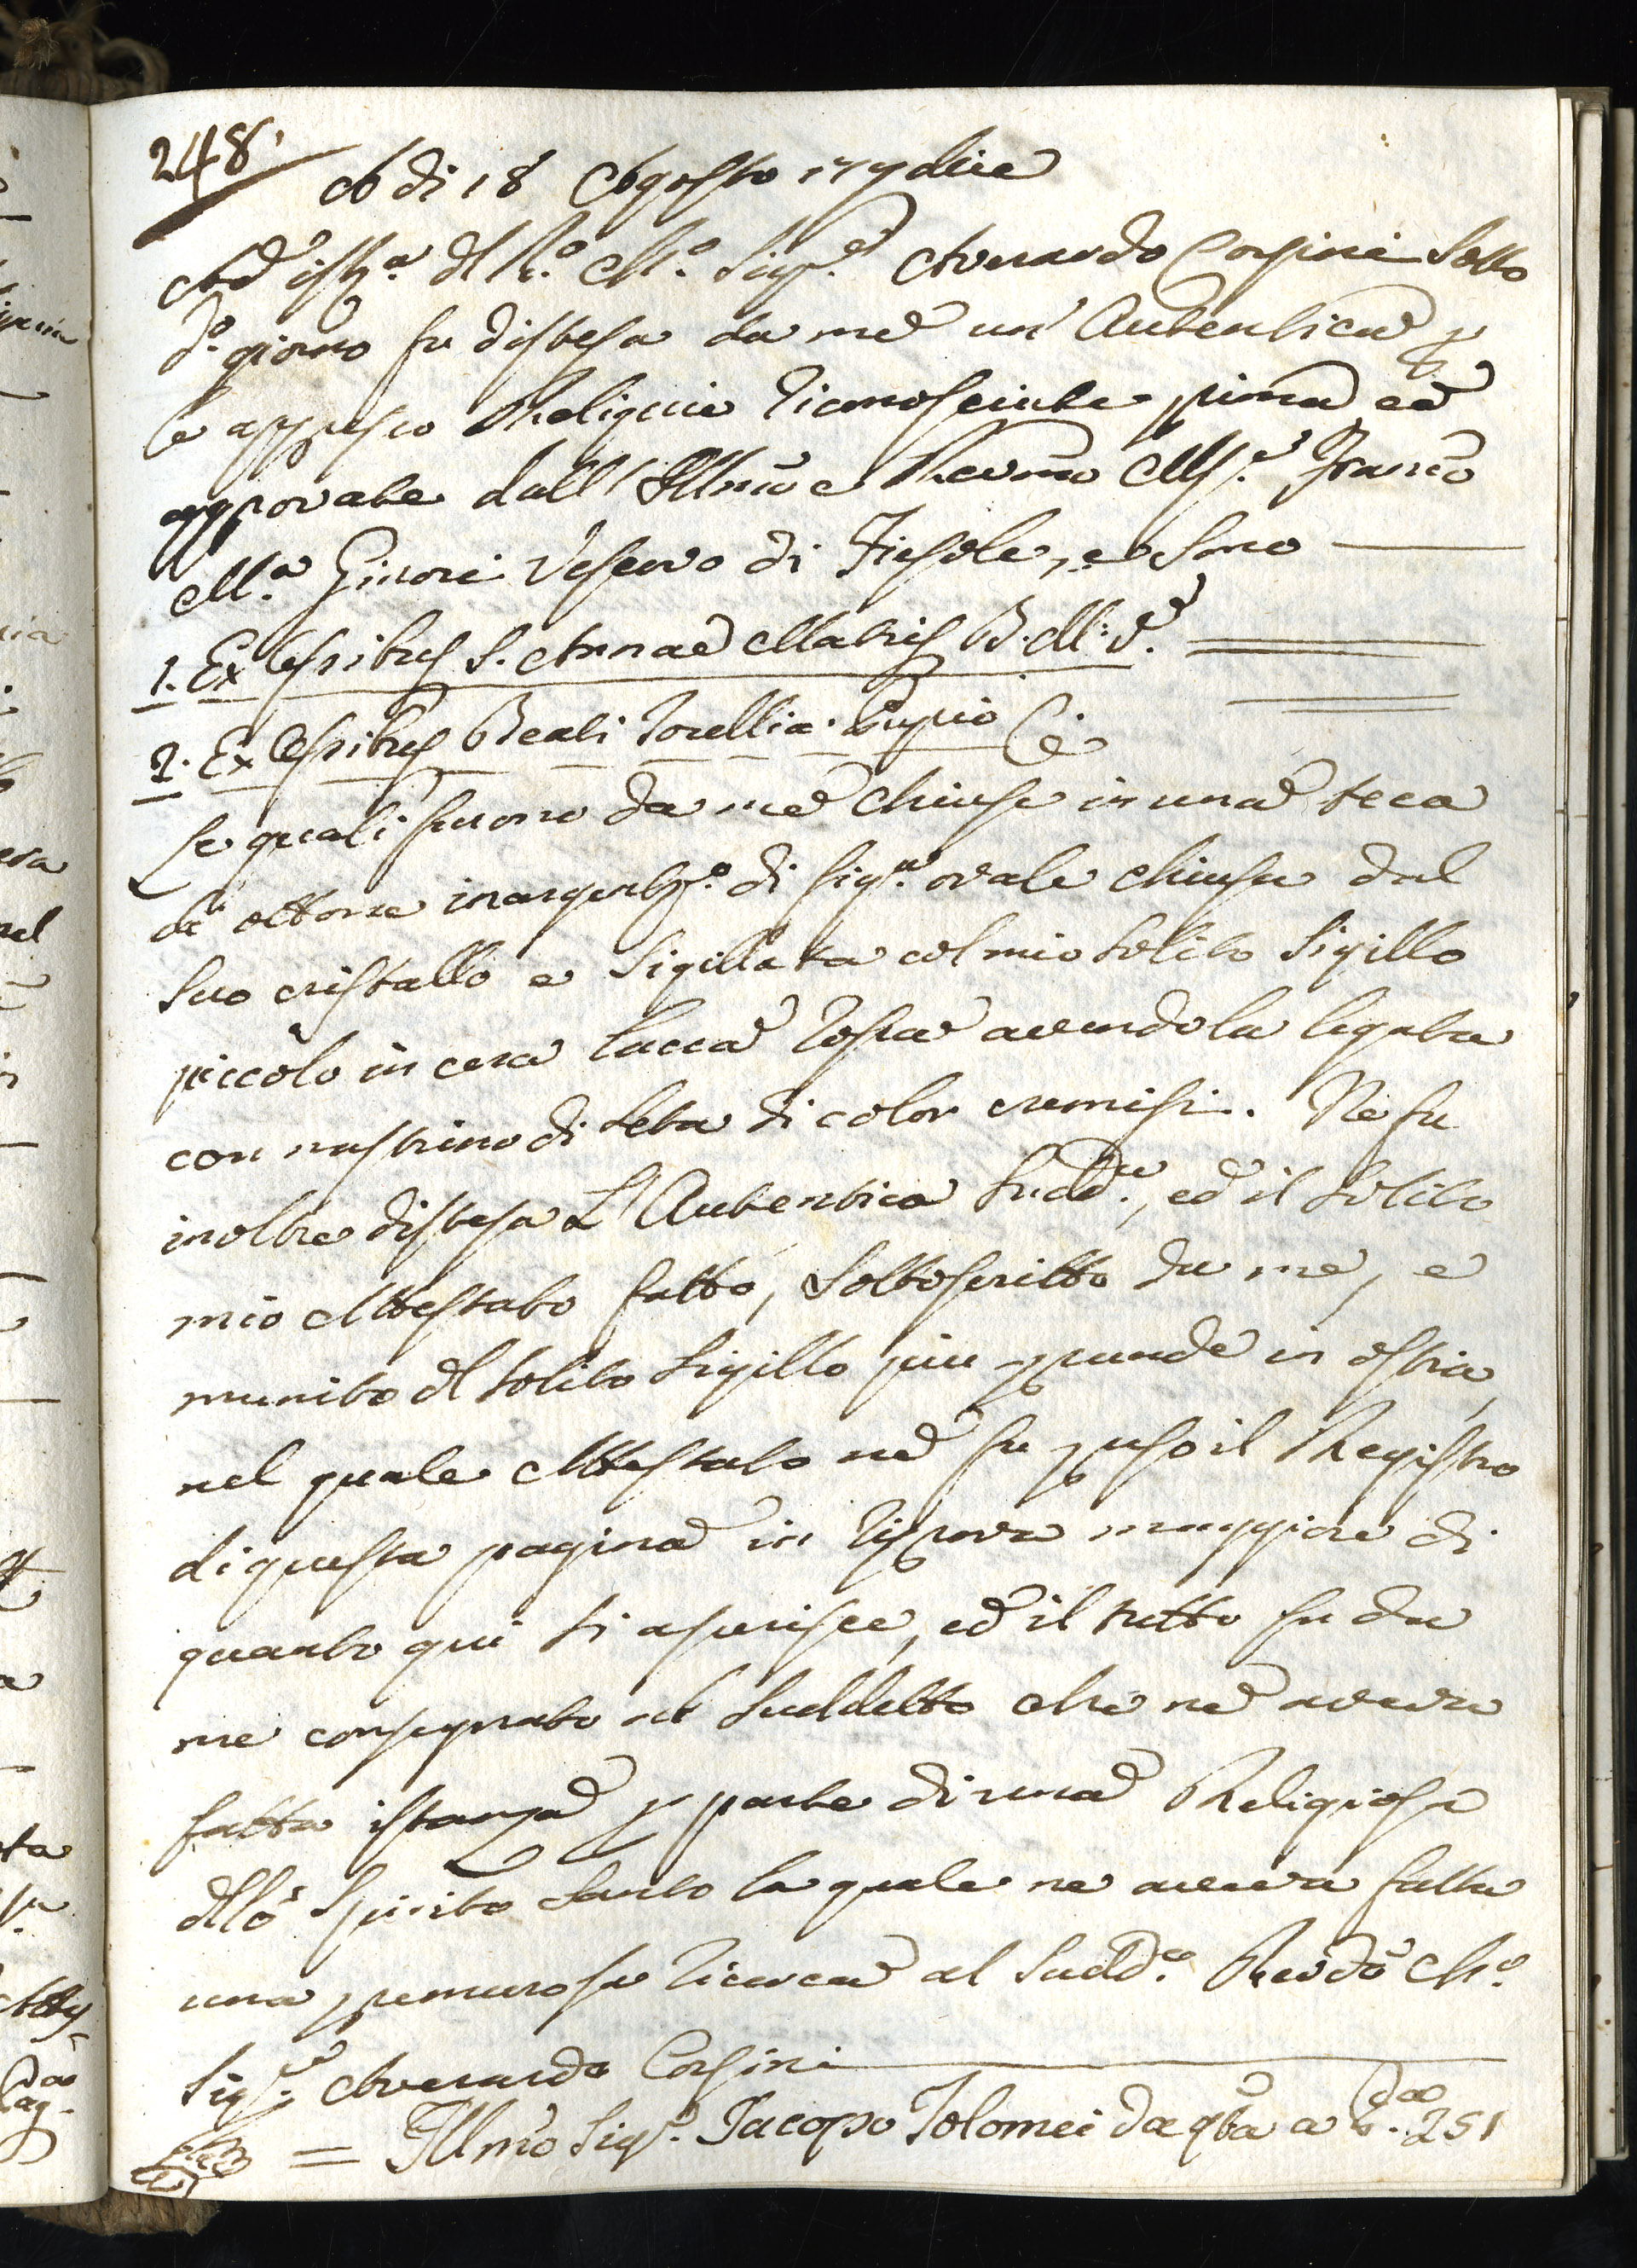 248.
A di 18 Agosto 17 dicie
Ad istz.a dl R.o M.o Sig.re Averardo Corsini sotto
d.o giorno fu distesa da me un' Autentica p
le appreso Reliquie riconosciute pima ed
approvate dall' Illmo e Revmo Msr.e Franco
M.a Ginori Vescovo di Fiesole, e sono
1. Ex Cssibus S. Annae Matris B. M. V.
2. Ex Ossibus Beati Torellia Pupio &.
Le quali furono da me chiuse in una teca
di ottone inargentz.o di fig.ra ovale chiusa dal
suo cristallo e sigillata col mio solito sigillo
piccolo in cera lacca rossa avendola legata
con nastrino di seta di color cremisi. Ne fu
inoltre distesa L' Autentica Sudd.a, ed il solito
mio Attestato fatto, sottoscritto da me, e
munito dl solito sigillo piu grande in ostia,
nel quale Attestato ne fu preso il Registro
di questa pagina in riprova maggiore di
quanto qui si asserisce, ed il tutto fu da
me consegnato al suddetto che ne aveva
fatta istanza p parte di una Religiosa
dllo Spirito Santo la quale ne aveva fatta
una premurosa ricerca al sudd.o Revdo M.o
Sig.re Averardo Corsini
= Illmo Sig.r Jacopo Tolomei da qta a 251